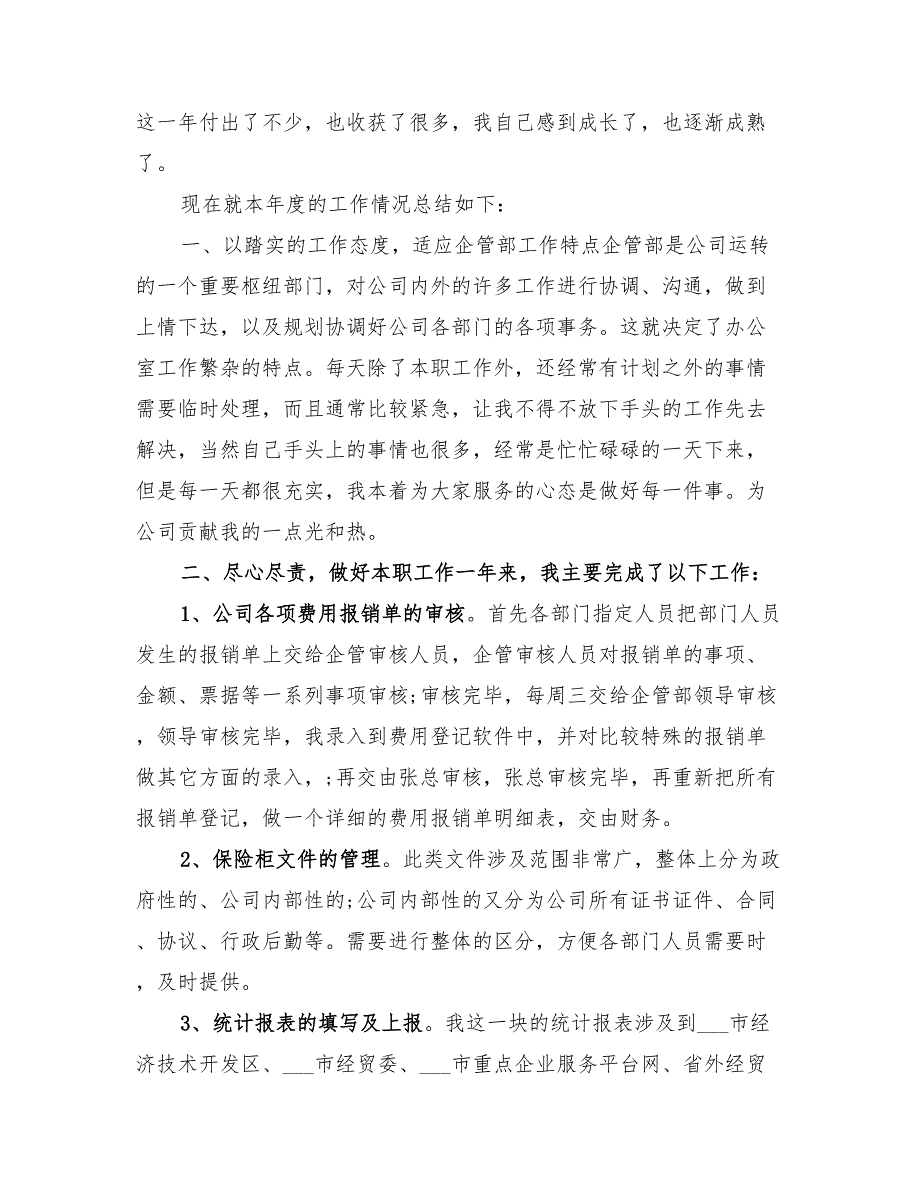 这一年付出了不少，也收获了很多，我自己感到成长了，也逐渐成熟
了。
现在就本年度的工作情况总结如下：
一、以踏实的工作态度，适应企管部工作特点企管部是公司运转
的一个重要枢纽部门，对公司内外的许多工作进行协调、沟通，做到
上情下达，以及规划协调好公司各部门的各项事务。这就决定了办公
室工作繁杂的特点。每天除了本职工作外，还经常有计划之外的事情
需要临时处理，而且通常比较紧急，让我不得不放下手头的工作先去
解决，当然自己手头上的事情也很多，经常是忙忙碌碌的一天下来，
但是每一天都很充实，我本着为大家服务的心态是做好每一件事。为
公司贡献我的一点光和热。
二、尽心尽责，做好本职工作一年来，我主要完成了以下工作：
1、公司各项费用报销单的审核。首先各部门指定人员把部门人员
发生的报销单上交给企管审核人员，企管审核人员对报销单的事项、
金额、票据等一系列事项审核;审核完毕，每周三交给企管部领导审核
，领导审核完毕，我录入到费用登记软件中，并对比较特殊的报销单
做其它方面的录入，;再交由张总审核，张总审核完毕，再重新把所有
报销单登记，做一个详细的费用报销单明细表，交由财务。
2、保险柜文件的管理。此类文件涉及范围非常广，整体上分为政
府性的、公司内部性的;公司内部性的又分为公司所有证书证件、合同
、协议、行政后勤等。需要进行整体的区分，方便各部门人员需要时
，及时提供。
3、统计报表的填写及上报。我这一块的统计报表涉及到___市经
济技术开发区、___市经贸委、___市重点企业服务平台网、省外经贸